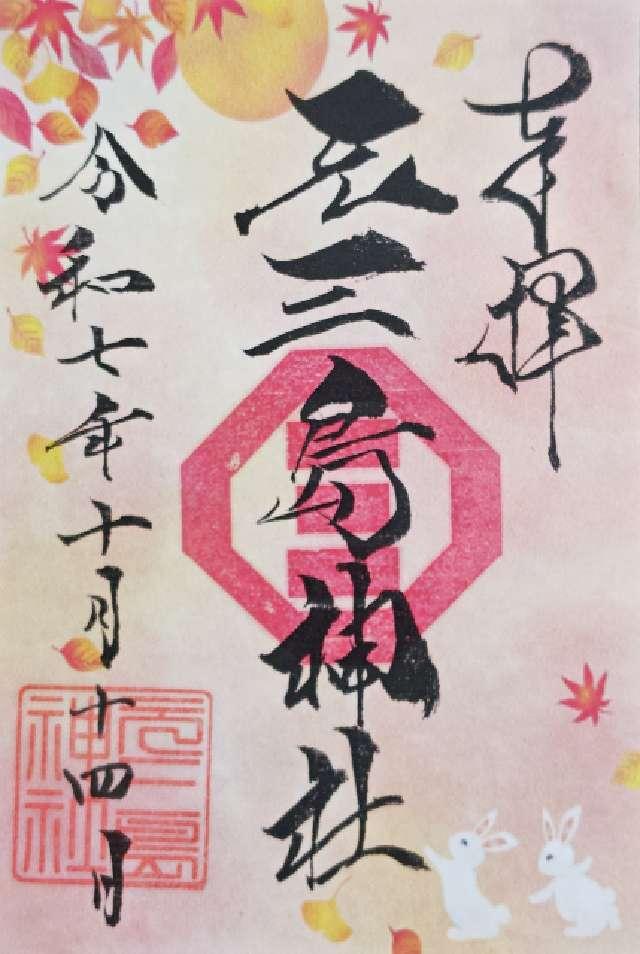 奉拝
元三島神社
令和七年十月十四日
元三島
神社